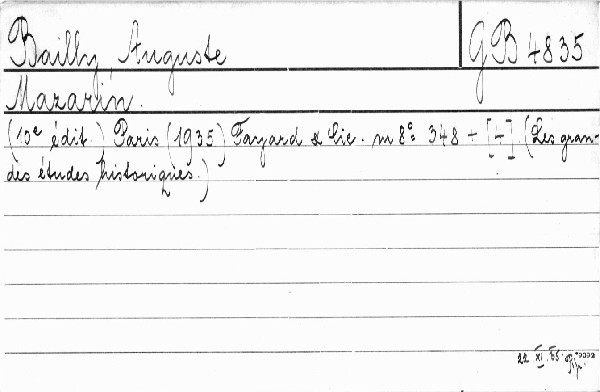 Bailly Auguste
GB 4835
Mazarin.
(13e édit.) Paris (1935) Fayard & Cie. m 8° 348 + [-]. (Les gran-
des études historiques.)
22 XI. 55.